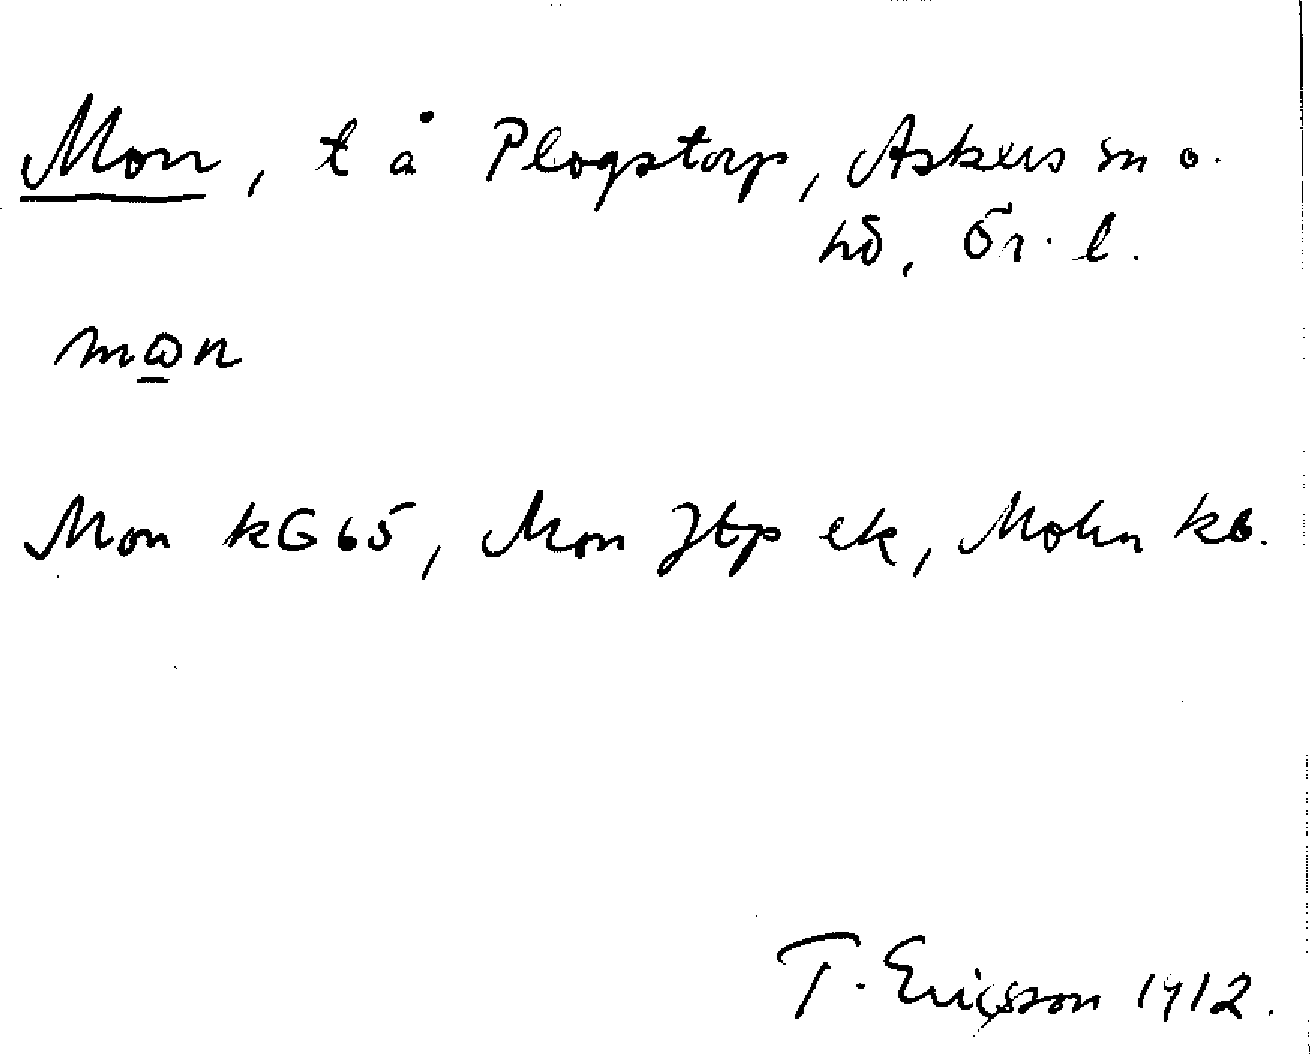 Mon, t å Plogstorp, Askers sn o.
hd, Ör. l.
mωn
Mon kG65, Mon Jtp ek, Mohn kb.
T. Ericsson 1912.